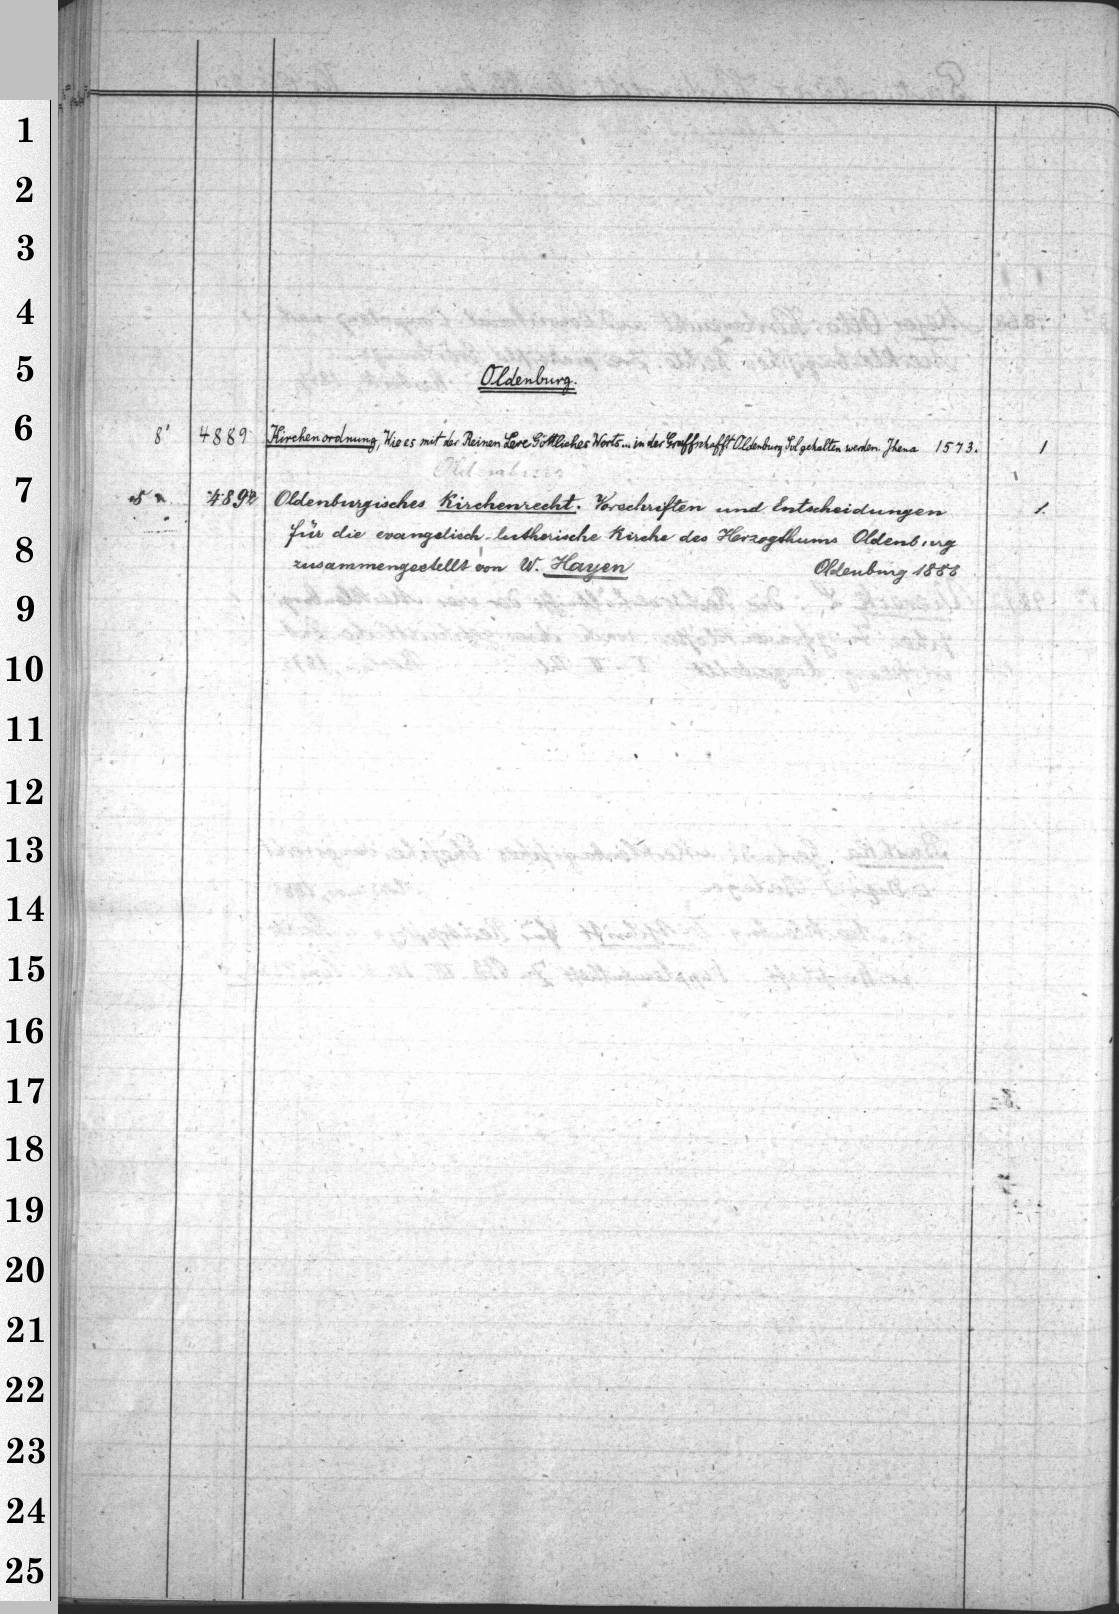 1
2
3
4
5
Oldenburg.
6
8° 4889 Kirchenordnung, Wie es mit der Reinen Lere Göttliches Worts... in der Graffschafft Oldenburg Sol gehalten werden. Jhena 1573. 1
Oldenburg
7
Oldenburgisches Kirchenrecht. Vorschriften und Entscheidungen 1.
8
für die evangelisch-lutherische Kirche des Herzogthums Oldenburg
zusammengestellt von W. Hayen Oldenburg 1888
9
10
11
12
13
14
15
16
17
18
19
20
21
22
23
24
25